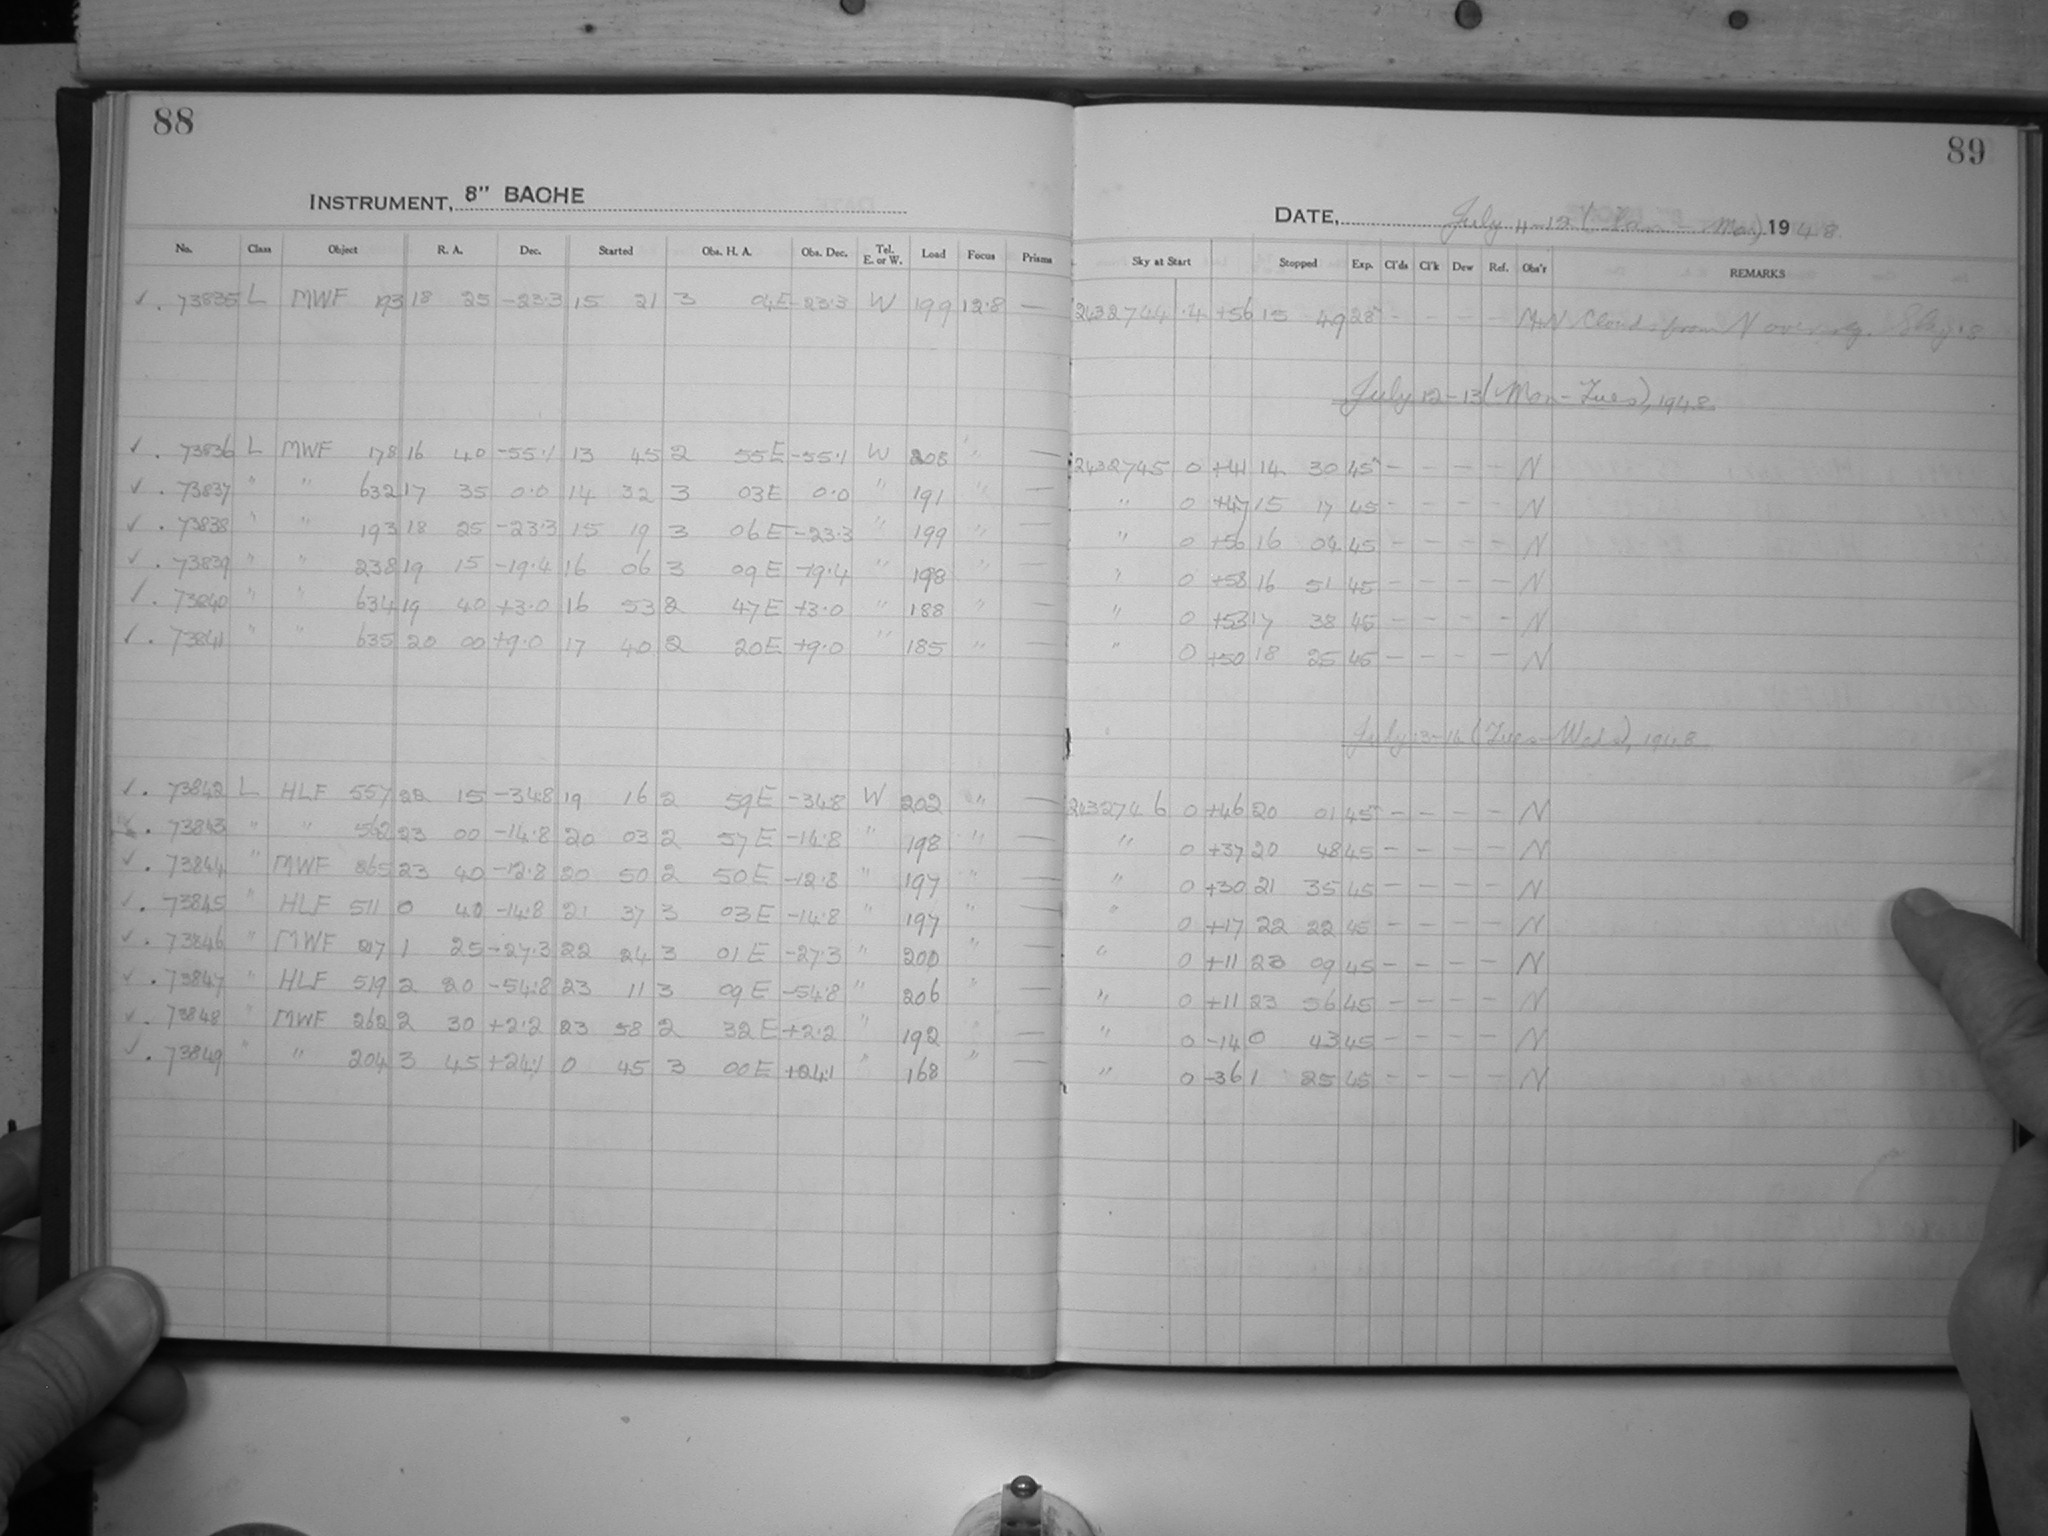 88
INSTRUMENT, 8" BACHE
No. Class Object R. A. Dec. Started Obs. H. A. Obs. Dec. Tel. E. or W. Load Focus Prisms
✓ . 73835 L MWF 193 18 25 -23.3 15 21 3 04E -23.3 W 199 12.8 —
✓ . 73836 L MWF 178 16 40 -55.1 13 45 2 55E -55.1 W 208 " —
✓ . 73837 " " 632 17 35 0.0 14 32 3 03E 0.0 " 191 " —
✓ . 73838 " " 193 18 25 -23.3 15 19 3 06E -23.3 " 199 " —
✓ . 73839 " " 238 19 15 -19.4 16 06 3 09E -19.4 " 198 " —
✓ . 73840 " " 634 19 40 +3.0 16 53 2 47E +3.0 " 188 " —
✓ . 73841 " " 635 20 00 +9.0 17 40 2 20E +9.0 " 185 " —
✓ . 73842 L HLF 557 22 15 -34.8 19 16 2 59E -34.8 W 202 " —
✓ . 73843 " " 562 23 00 -14.8 20 03 2 57E -14.8 " 198 " —
✓ . 73844 " MWF 365 23 40 -12.8 20 50 2 50E -12.8 " 197 " —
✓ . 73845 " HLF 511 0 40 -14.8 21 37 3 03E -14.8 " 197 " —
✓ . 73846 " MWF 217 1 25 -27.3 22 24 3 01E -27.3 " 200 " —
✓ . 73847 " HLF 519 2 20 -54.8 23 11 3 09E -54.8 " 206 " —
✓ . 73848 " MWF 262 2 30 +2.2 23 58 2 32E +2.2 " 192 " —
✓ . 73849 " " 204 3 45 +24.1 0 45 3 00E +24.1 " 168 " —
89
DATE, July 11-12 (Sun - Mon) 1948
Sky at Start Stopped Exp. Cl'ds Cl'k Dew Ref. Obs'r REMARKS
2432744 .4 +56 15 49 28 - - - - N Clouds from N over
July 12-13 (Mon-Tues), 1948
2432745 0 +41 14 30 45 - - - - N
" 0 +47 15 17 45 - - - - N
" 0 +56 16 04 45 - - - - N
" 0 +58 16 51 45 - - - - N
" 0 +53 17 38 45 - - - - N
" 0 +50 18 25 45 - - - - N
July 13-14 (Tues-Weds), 1948
2432746 0 +46 20 01 45 - - - - N
" 0 +37 20 48 45 - - - - N
" 0 +30 21 35 45 - - - - N
" 0 +17 22 22 45 - - - - N
" 0 +11 23 09 45 - - - - N
" 0 +11 23 56 45 - - - - N
" 0 -14 0 43 45 - - - - N
" 0 -36 1 25 45 - - - - N